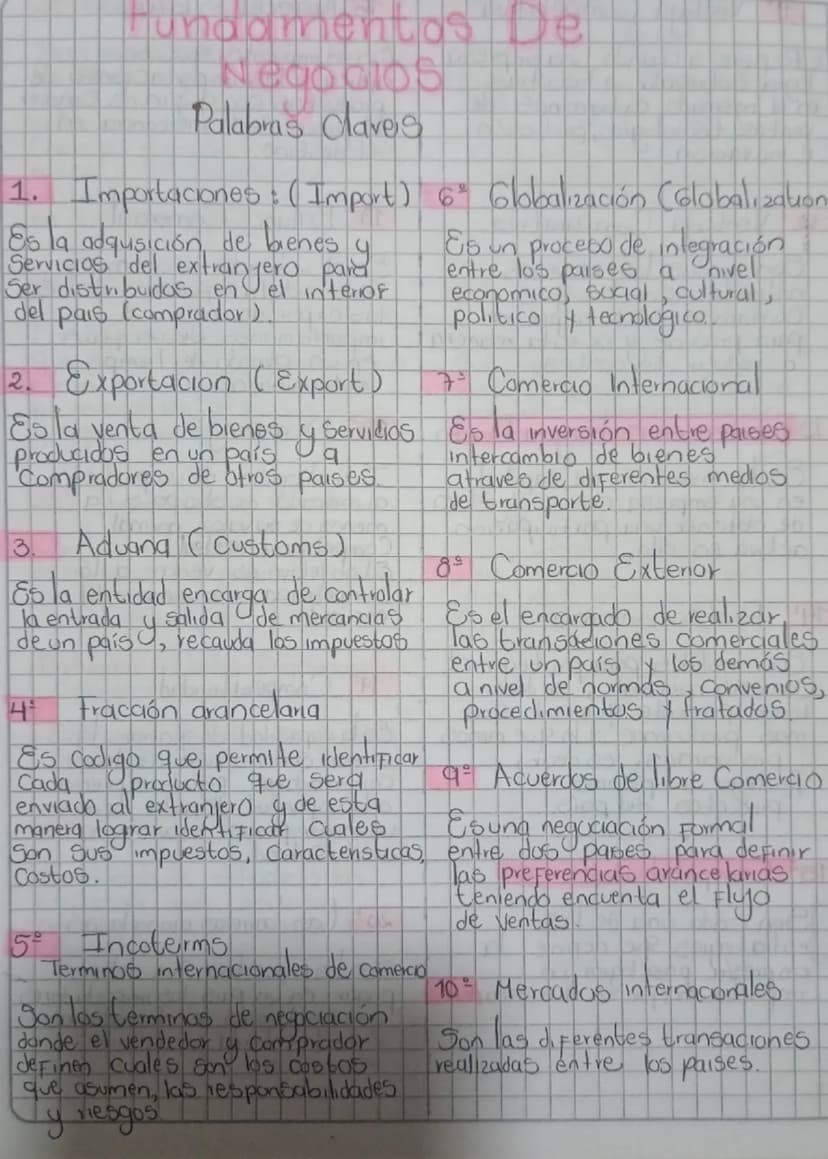 Fundamentos De
Negocios
Palabras Claves
1. Importaciones: (Import)
Es la adqusición de bienes y
Servicios del extranjero para
Ser distribuidos en el interior
del país (comprador).
2. Exportacion (Export)
Es la venta de bienes y servicios
producidos en un país a
Compradores de otros paises.
3. Aduana (Customs)
Es la entidad encarga de controlar
la entrada y salida de mercancias
de un país, recauda los impuestos
4º Fracción arancelaria
Es codigo que permite identificar
Cada producto que sera
enviado al extranjero y de esta
manera lograr identificar cuales
Son sus impuestos, Caracteristicas,
Costos.
5º Incoterms
Terminos internacionales de comercio
Son los terminos de negociación
donde el vendedor y comprador
definen cuales son los costos
que asumen, las responsabilidades
y riesgos
6º Globalización (Globalization
Es un proceso de integración
entre los paises a nivel
economico, social, cultural,
politico y tecnologico.
7º Comercio Internacional
Es la inversión entre paises
intercambio de bienes
atraves de diferentes medios
de transporte.
8º Comercio Exterior
Es el encargado de realizar
las transaciones comerciales
entre un país y los demás
a nivel de normas, convenios,
procedimientos y tratados.
9º Acuerdos de libre Comercio
Es una negociación formal
entre dos paises para definir
las preferencias arancelarias
teniendo encuenta el flujo
de ventas.
10º Mercados internacionales
Son las diferentes transaciones
realizadas entre los paises.